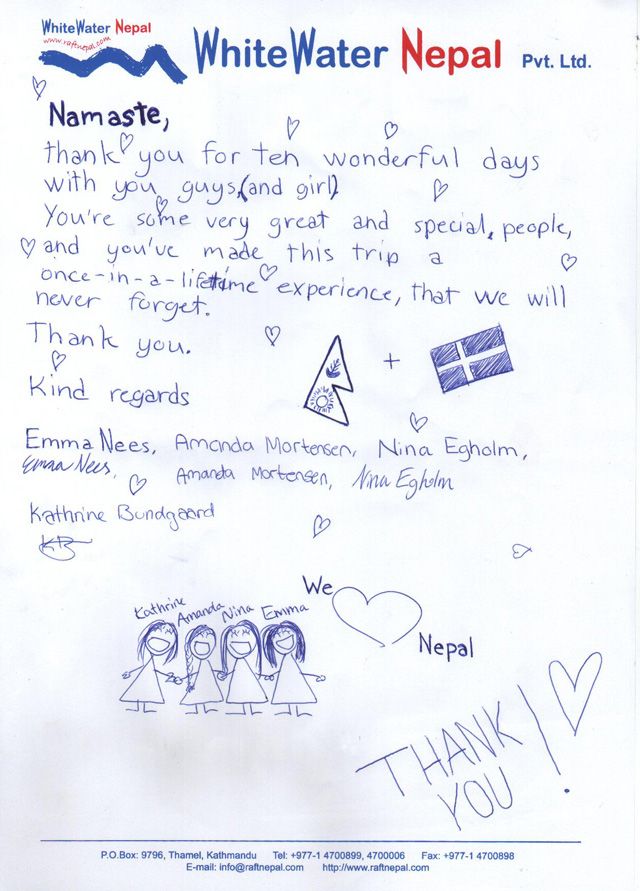 WhiteWater Nepal
www.raftnepal.com
WhiteWater Nepal Pvt. Ltd.
Namaste,
thank you for ten wonderful days
with you guys,(and girl)
You're some very great and special, people,
and you've made this trip a
once-in-a-lifetime experience, that we will
never forget.
Thank you.
+
Kind regards
Emma Nees, Amanda Mortensen, Nina Egholm,
Emma Nees, Amanda Mortensen, Nina Egholm
Kathrine Bundgaard
KB
We
Kathrine Amanda Nina Emma
Nepal
THANK
YOU!
P.O.Box: 9796, Thamel, Kathmandu Tel: +977-1 4700899, 4700006 Fax: +977-1 4700898
E-mail: info@raftnepal.com http://www.raftnepal.com